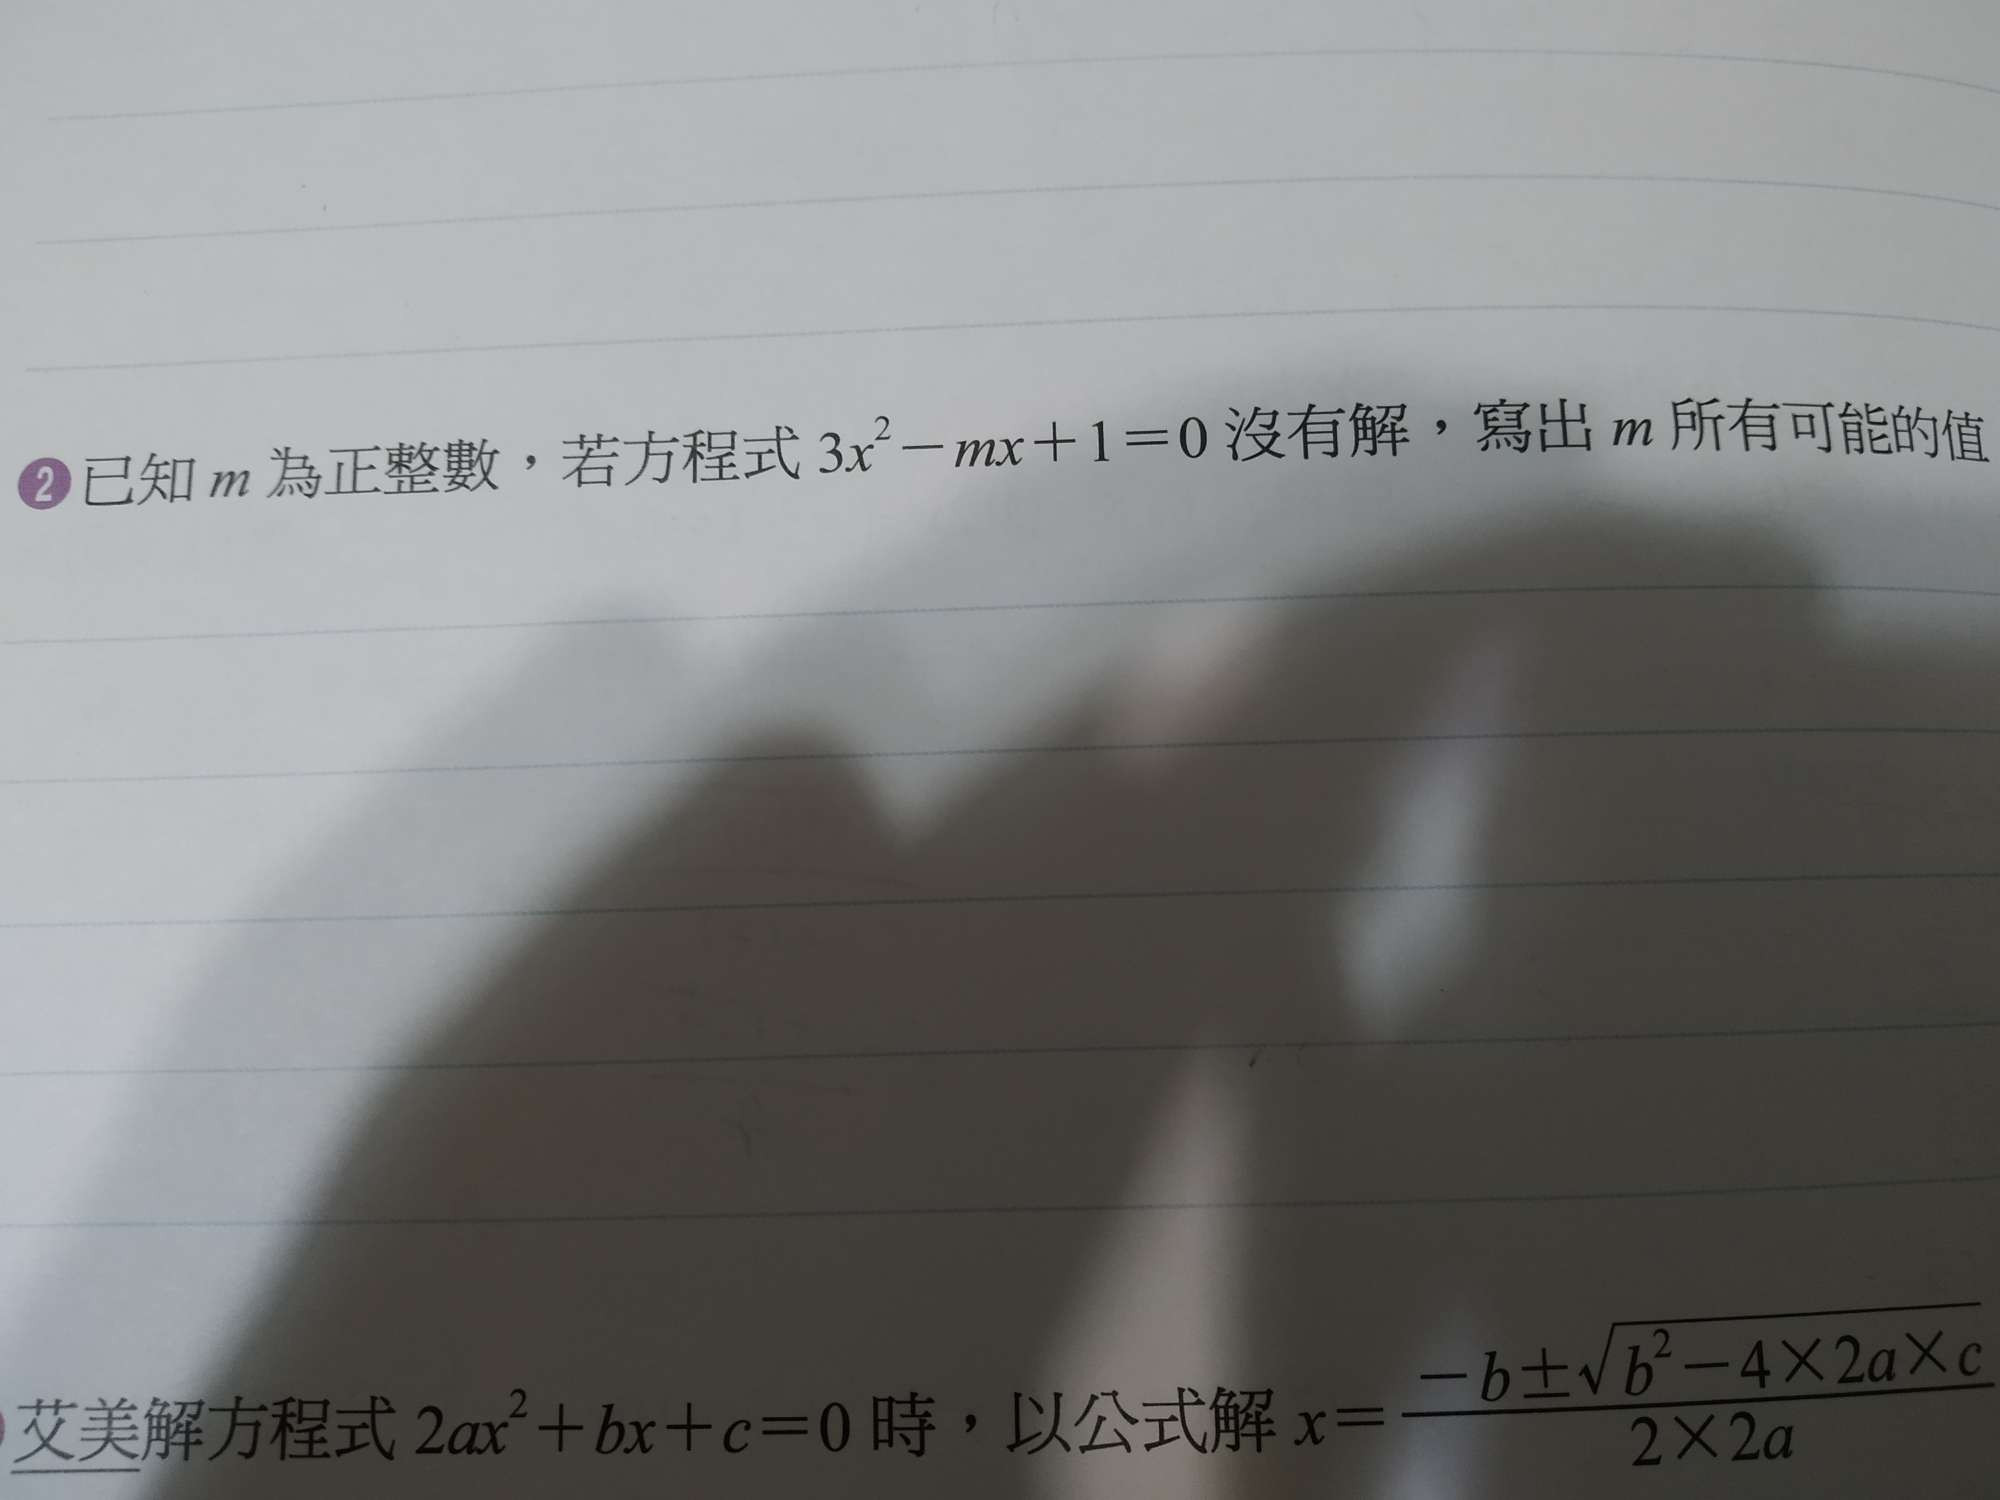 2 已知 m 為正整數，若方程式 3x²－mx＋1＝0 沒有解，寫出 m 所有可能的值
艾美解方程式 2ax²＋bx＋c＝0 時，以公式解 x＝\frac{-b±\sqrt{b²-4×2a×c}}{2×2a}